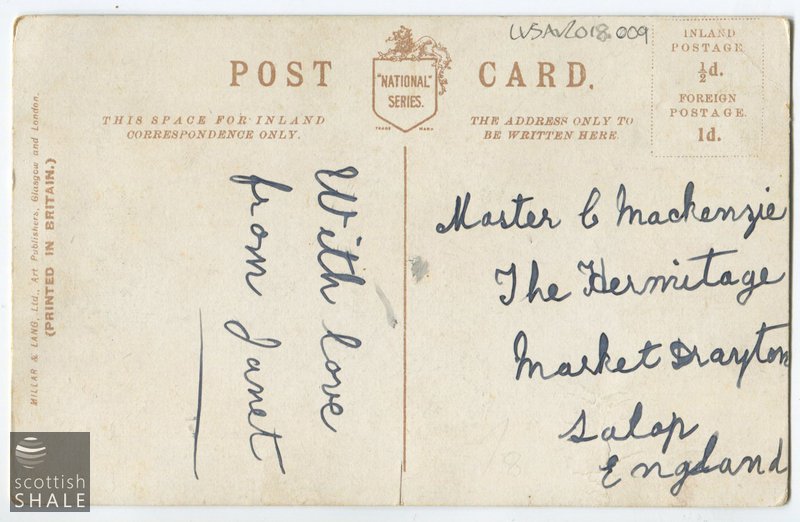 LVSAV2018.009
POST CARD.
"NATIONAL"
SERIES.
TRADE MARK
INLAND
POSTAGE
½d.
FOREIGN
POSTAGE.
1d.
THIS SPACE FOR INLAND
CORRESPONDENCE ONLY.
THE ADDRESS ONLY TO
BE WRITTEN HERE.
MILLAR & LANG, Ltd., Art Publishers, Glasgow and London.
(PRINTED IN BRITAIN.)
With love
from Janet
Master C Mackenzie
The Hermitage
Market Drayton
Salop
England
scottish
SHALE